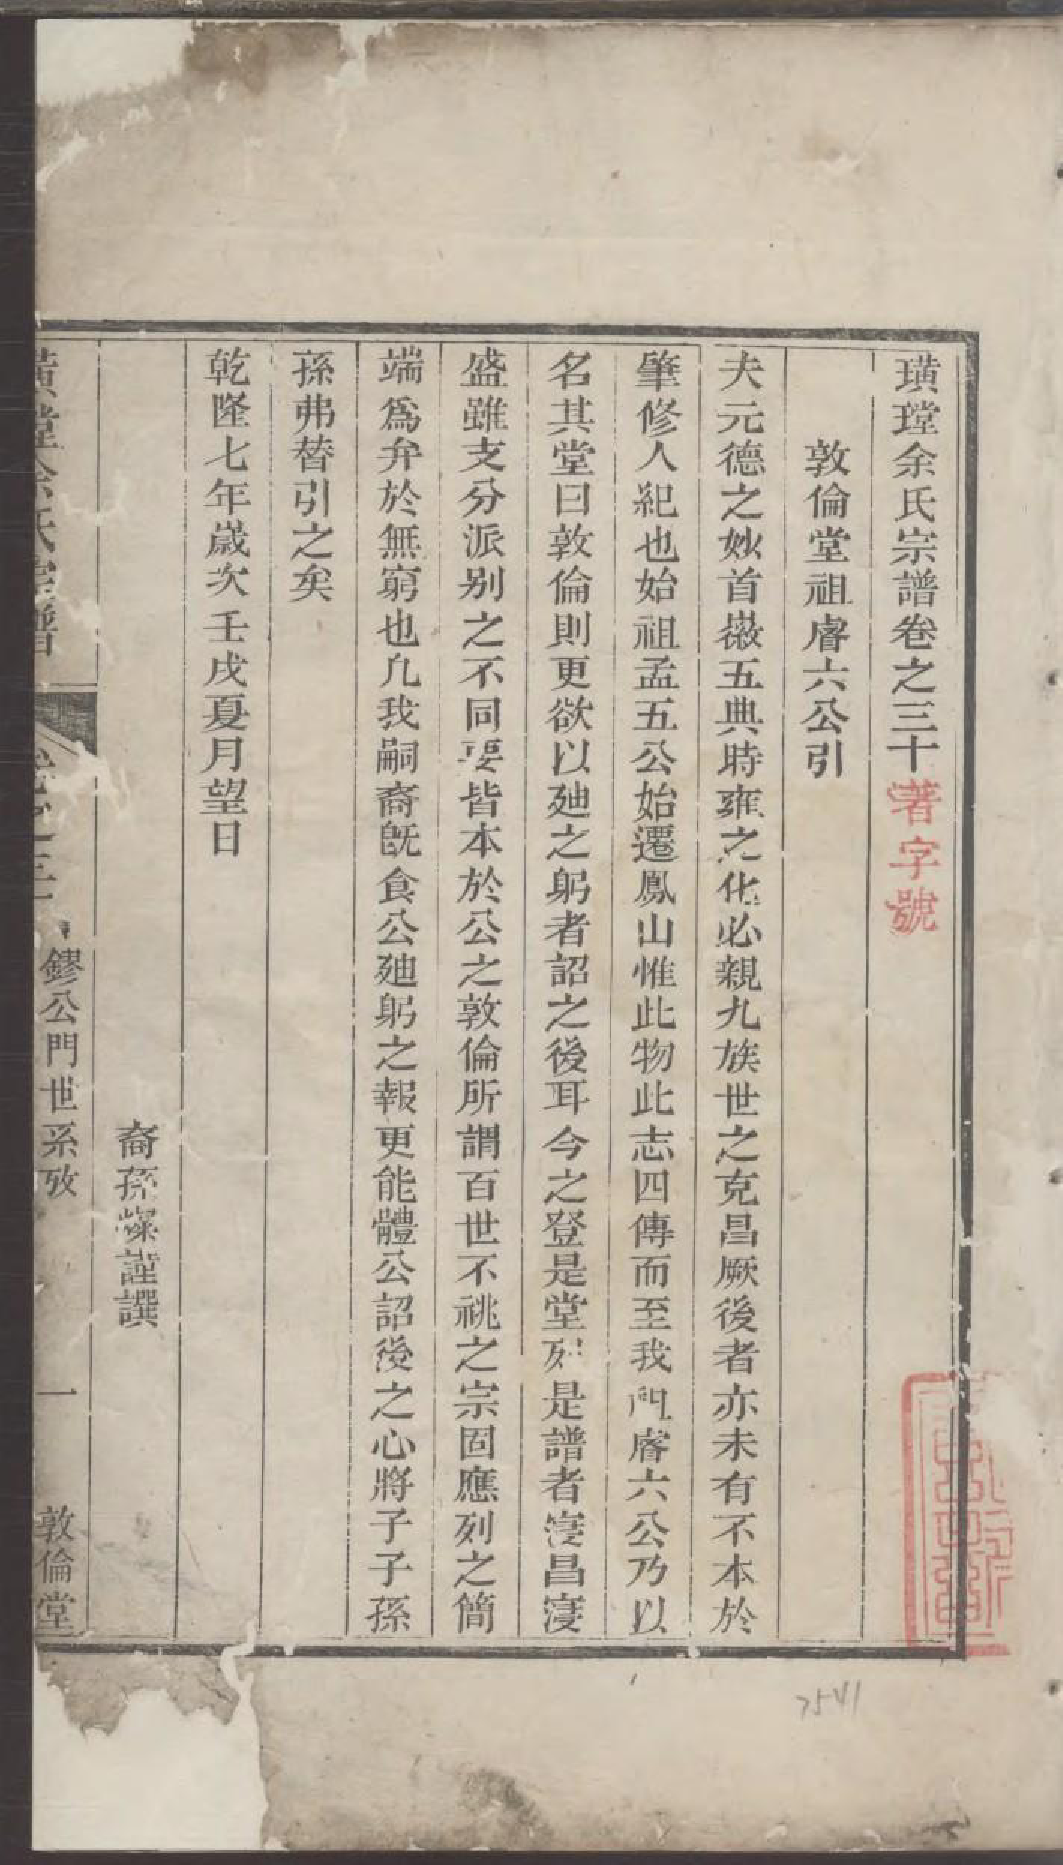 璜瑝余氏宗譜卷之三十著字號
敦倫堂祖睿六公引
夫元德之妙首㩲五典時雍之化必親九族世之克昌厥後者亦未有不本於
肇修人紀也始祖孟五公始遷鳳山惟此物此志四傳而至我門睿六公乃以
名其堂曰敦倫則更欲以廸之躬者詔之後耳今之登是堂列是譜者寖昌寖
盛雖支分派别之不同要皆本於公之敦倫所謂百世不祧之宗固應列之簡
端爲弁於無窮也凡我嗣裔旣食公廸躬之報更能體公詔後之心將子子孫
孫弗替引之矣
乾隆七年嵗次壬戌夏月望日
裔孫燦謹譔
璜瑝余氏宗譜 卷之三十 鏐公門世系攷 一 敦倫堂
7541